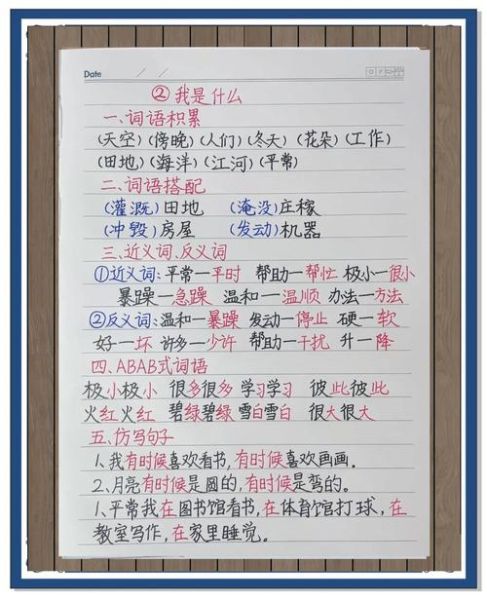 Date / /
②我是什么
一、词语积累
(天空)(傍晚)(人们)(冬天)(花朵)(工作)
(田地)(海洋)(江河)(平常)
二、词语搭配
(灌溉)田地 (淹没)庄稼
(冲毁)房屋 (发动)机器
三、近义词、反义词
①近义词:平常一平时 帮助一帮忙 极小一很小
暴躁一急躁 温和一温顺 办法一方法
②反义词:温和一暴躁 发动一停止 硬一软
好一坏 许多一少许 帮助一干扰 升一降
四、ABAB式词语
极小极小 很多很多 学习学习 彼此彼此
火红火红 碧绿碧绿 雪白雪白 很大很大
五、仿写句子
1、我有时候喜欢看书,有时候喜欢画画。
2、月亮有时候是圆的,有时候是弯的。
1、平常我在图书馆看书,在体育馆打球,在
教室写作,在家里睡觉。